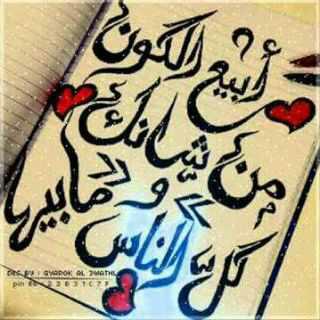 أبيع الكون
من شانك
و مابيها
كل الناس
DES BY : GYAROK AL 3WATHL